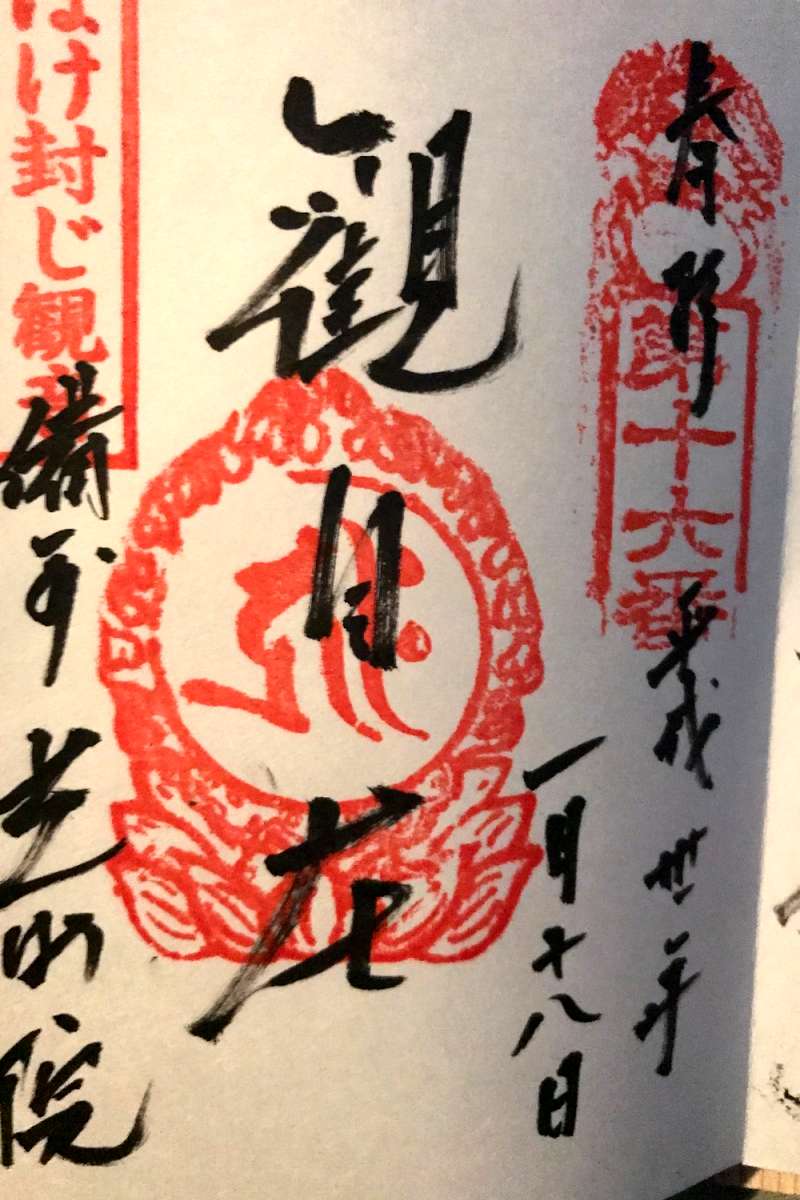 奉拝
第十六番
平成丗年
一月十八日
観自在
け封じ観音
備
光明院